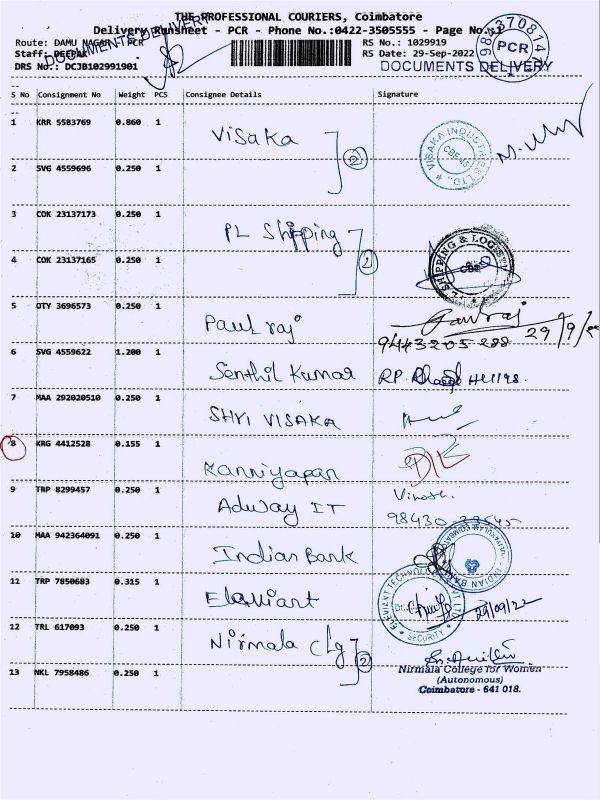 THE PROFESSIONAL COURIERS, Coimbatore
Delivery Runsheet - PCR - Phone No.:0422-3505555 - Page No.:1
Route: DAMU NAGAR - PCR
RS No.: 1029919
Staff: DEEPAK
RS Date: 29-Sep-2022
DRS No.: DCJB102991901
DOCUMENTS DELIVERY
DOCUMENTS DELIVERY
PCR
S No Consignment No Weight PCS Consignee Details Signature
1 KRR 5583769 0.860 1 Visaka
VISAKA INDUSTRIES LTD., CBE-45
2 SVG 4559696 0.250 1
2
3 COK 23137173 0.250 1 PL Shipping
4 COK 23137165 0.250 1
2
SHIPPING & LOGISTI
CBE
5 QTY 3696573 0.250 1 Paul raj
Paulraj
29/9/22
6 SVG 4559622 1.200 1 Senthil Kumar
7 MAA 292020510 0.250 1 SHYI VISAKA
8 KRG 4412528 0.155 1 Kanniyapan D/L
9 TRP 8299457 0.250 1 Adway IT Vinoth.
10 MAA 942364091 0.250 1 Indian Bank
INDIAN BANK
11 TRP 7850683 0.315 1 Eleviant
ELEVIANT TECHNOLOGIES PVT. LTD
SECURITY
29/09/22
12 TRL 617093 0.250 1 Nirmala Clg
2
13 NKL 7958486 0.250 1
Nirmala College for Women
(Autonomous)
Coimbatore - 641 018.